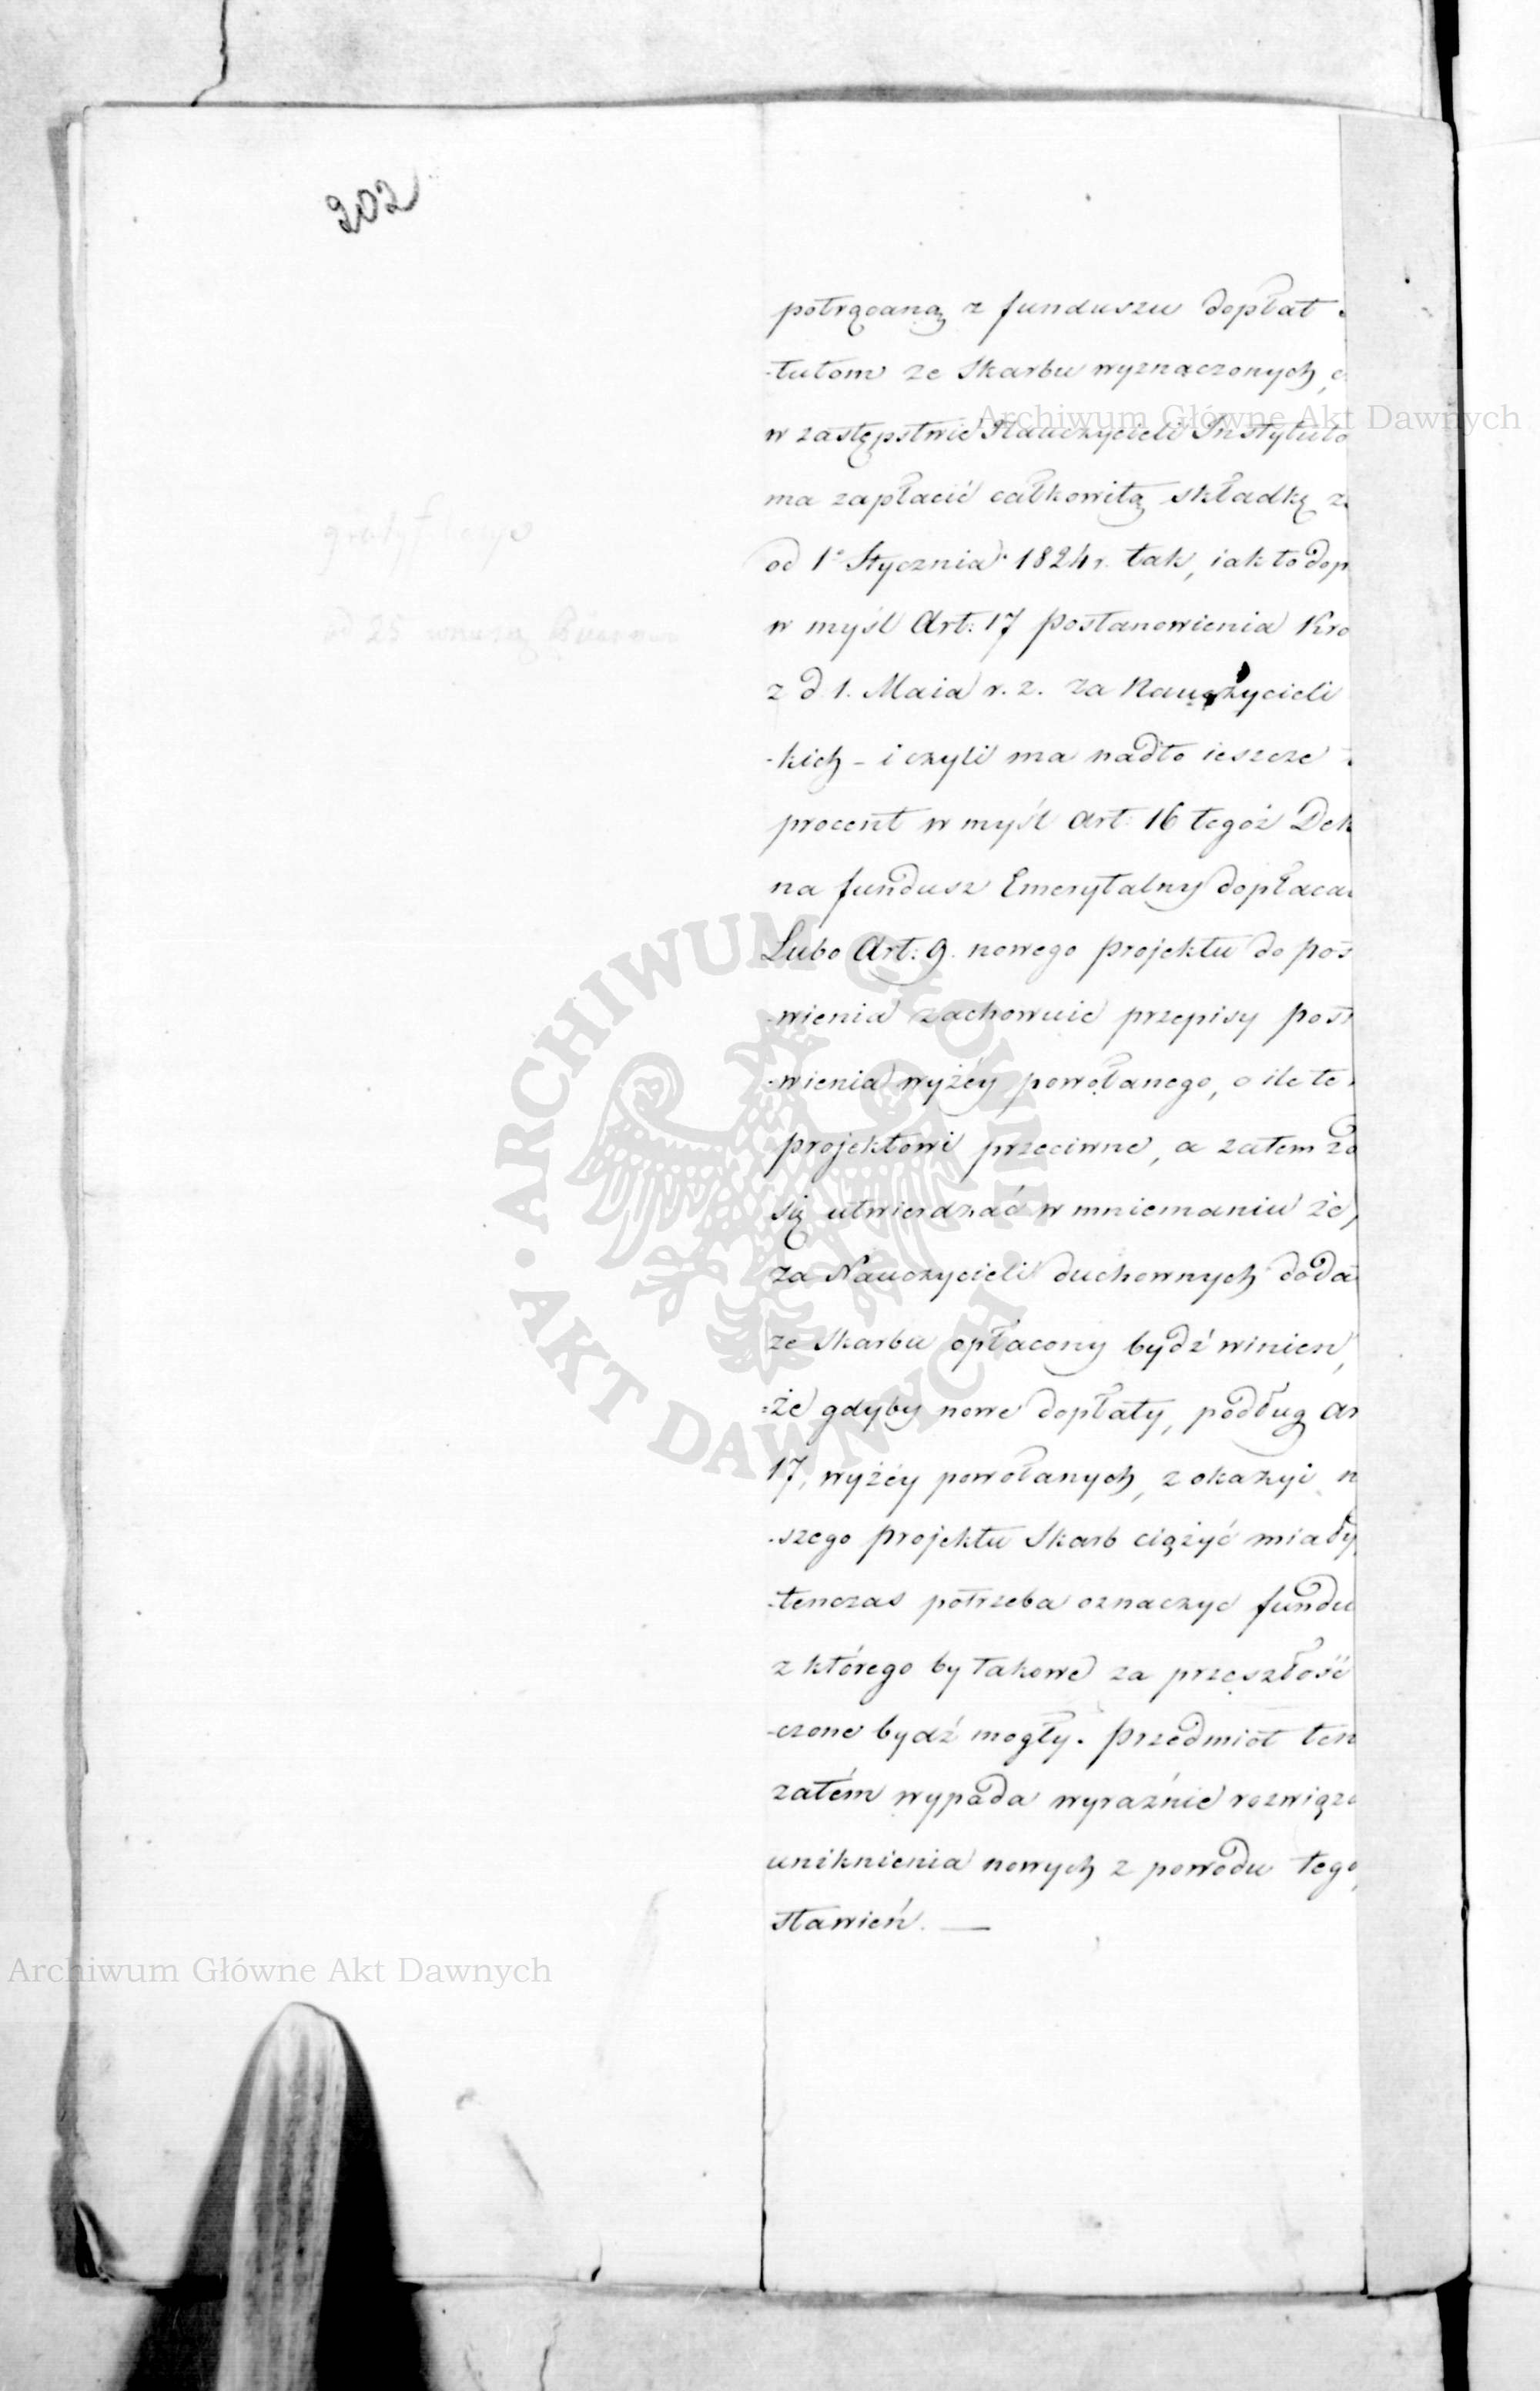 202
potrącaną z funduszu dopłat
-tutom ze Skarbu wyznaczonych,
Archiwum Główne Akt Dawnych
w zastępstwie Nauczycieli Instytuto
ma zapłacić całkowitą składkę
od 1º Stycznia 1824 r. tak, iak to dop
w myśl Art: 17 postanowienia Kro
z d. 1. Maia r. z. za Nauczycieli
-kich - i czyli ma nadto ieszcze
procent w myśl Art: 16 tegoż Dek
na fundusz Emerytalny dopłaca
Lubo Art: 9. nowego projektu do pos
-wienia zachowuie przepisy post
-wienia wyżéy powołanego, o ile te
projektowi przeciwne, a zatem zd
się utwierdzać w mniemaniu że,
za Nauczycieli duchownych doda
ze Skarbu opłacony bydź winien,
=że gdyby nowe dopłaty, podług Ar
17, wyżéy powołanych, z okazyi n
-szego projektu Skarb ciążyć miały,
-tenczas potrzeba oznaczyć fundu
z którego by takowe za przeszłość
-czone bydź mogły. Przedmiot ten
zatém wypada wyraźnie rozwiąza
uniknienia nowych z powodu tego
stawień. —
ARCHIWUM GŁÓWNE • AKT DAWNYCH •
Archiwum Główne Akt Dawnych